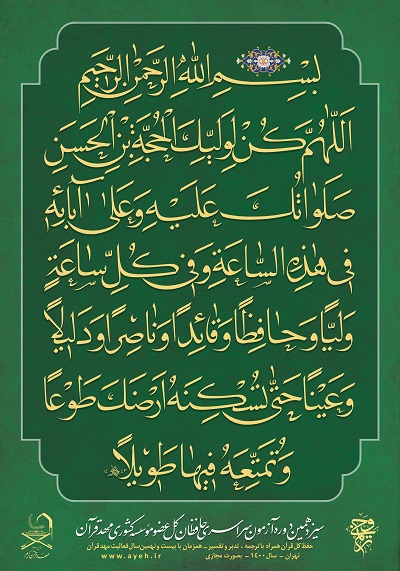 بِسْمِ اللهِ الرَّحْمٰنِ الرَّحِيمِ
اَللّٰهُمَّ كُنْ لِوَلِيِّكَ الْحُجَّةِ بْنِ الْحَسَنِ
صَلَواتُكَ عَلَيْهِ وَعَلىٰ آبائِهِ
فِي هٰذِهِ السَّاعَةِ وَفِي كُلِّ سَاعَةٍ
وَلِيًّا وَحَافِظًا وَقَائِدًا وَنَاصِرًا وَدَلِيلًا
وَعَيْنًا حَتّىٰ تُسْكِنَهُ اَرْضَكَ طَوْعًا
وَتُمَتِّعَهُ فِيهَا طَوِيلًا
سیزدهمین دوره آزمون سراسری حافظان کل عضو مؤسسه کشوری مهد قرآن
حفظ کل قرآن همراه با ترجمه، تدبر و تفسیر _ همزمان با بیست و نهمین سال فعالیت مهد قرآن
تهران - سال ۱۴۰۰ - بصورت مجازی
www.ayeh.ir